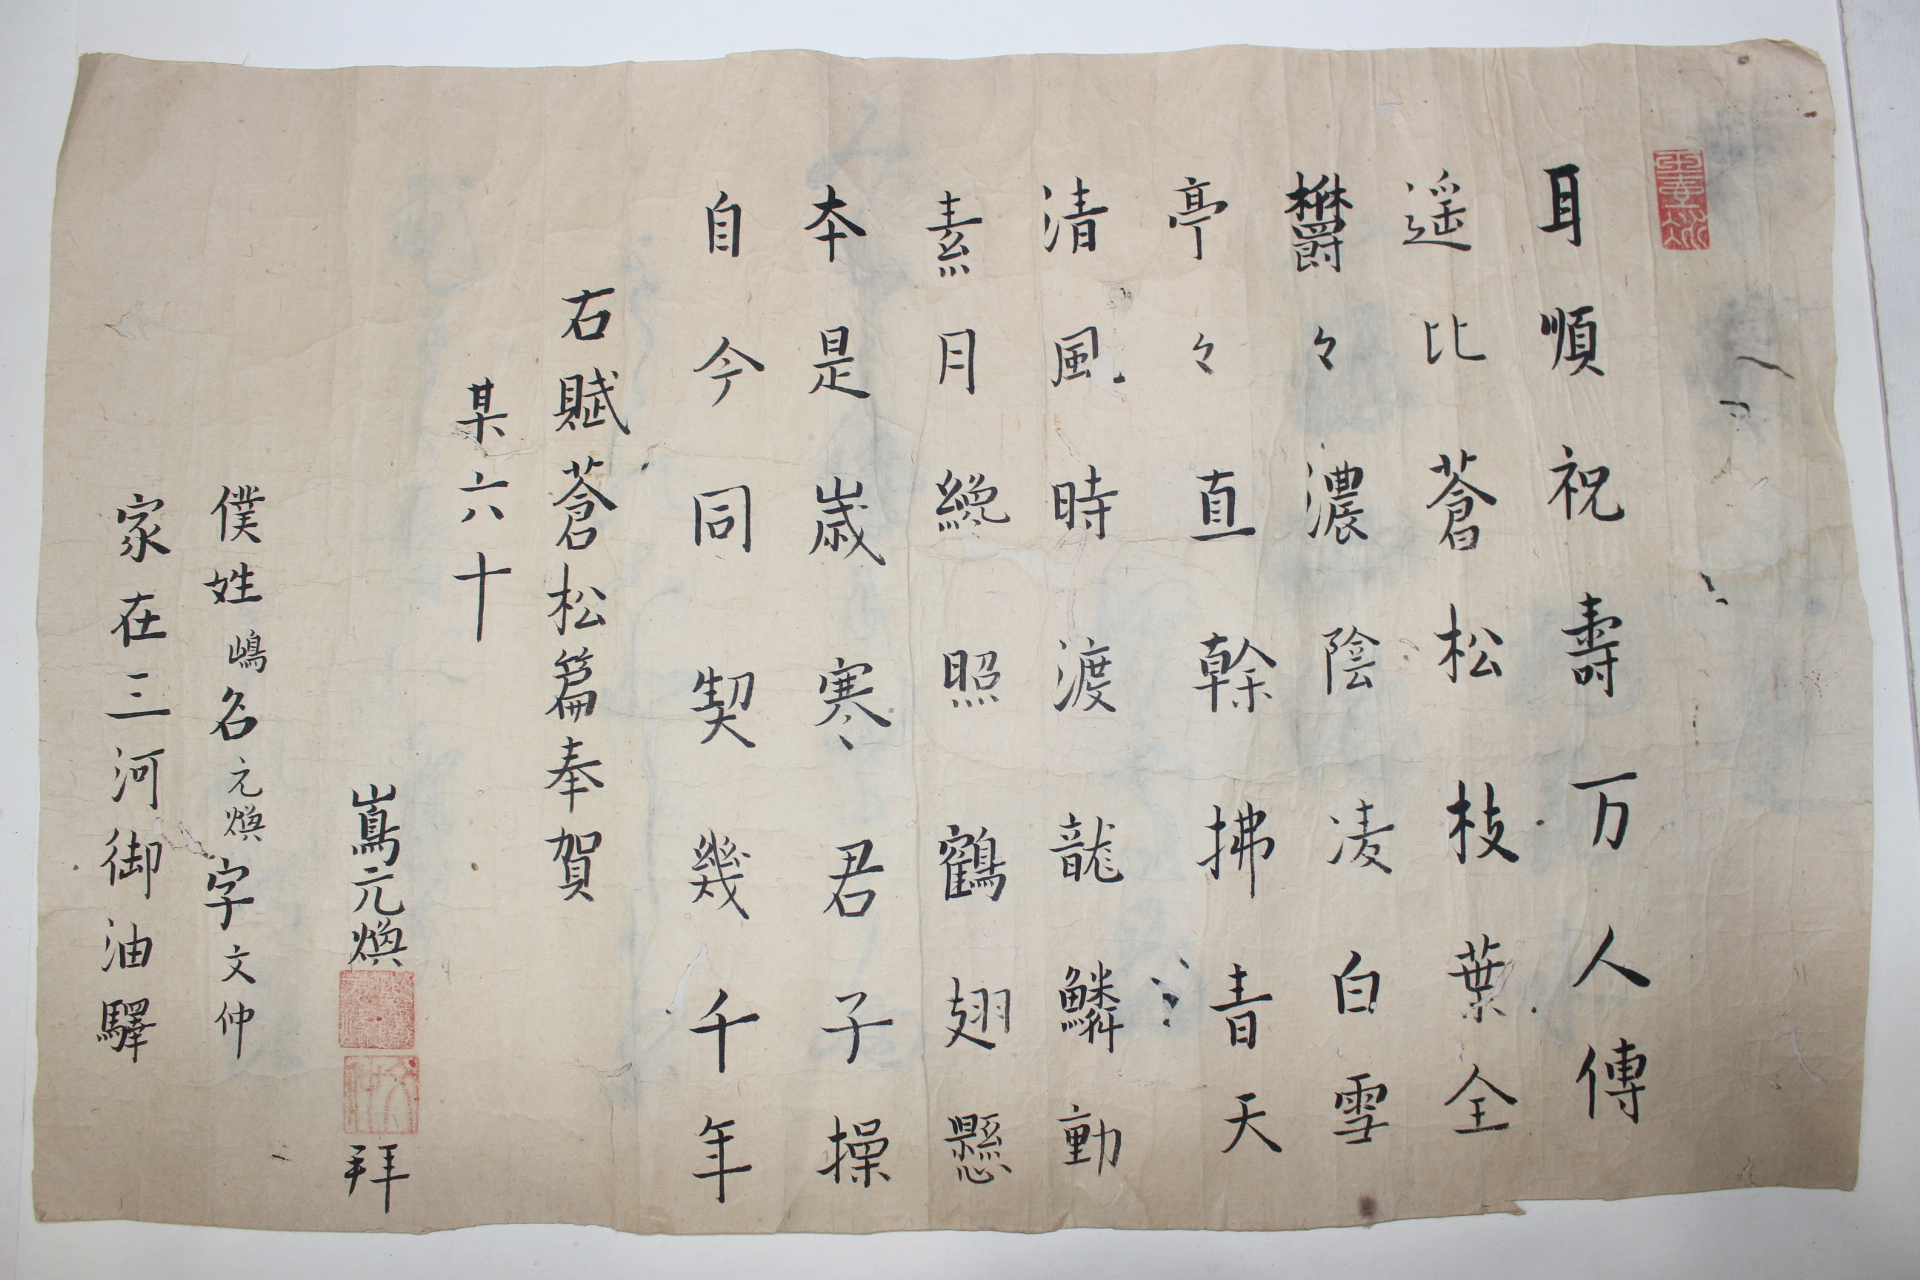 耳順祝壽万人傳
遥比蒼松枝葉全
欝々濃陰凌白雪
亭々直幹拂青天
清風時渡龍鱗動
素月纔照鶴翅懸
本是歳寒君子操
自今同契幾千年
右賦蒼松篇奉賀
某六十
嶌元煥
拜
僕姓嶋名元煥字文仲
家在三河御油驛